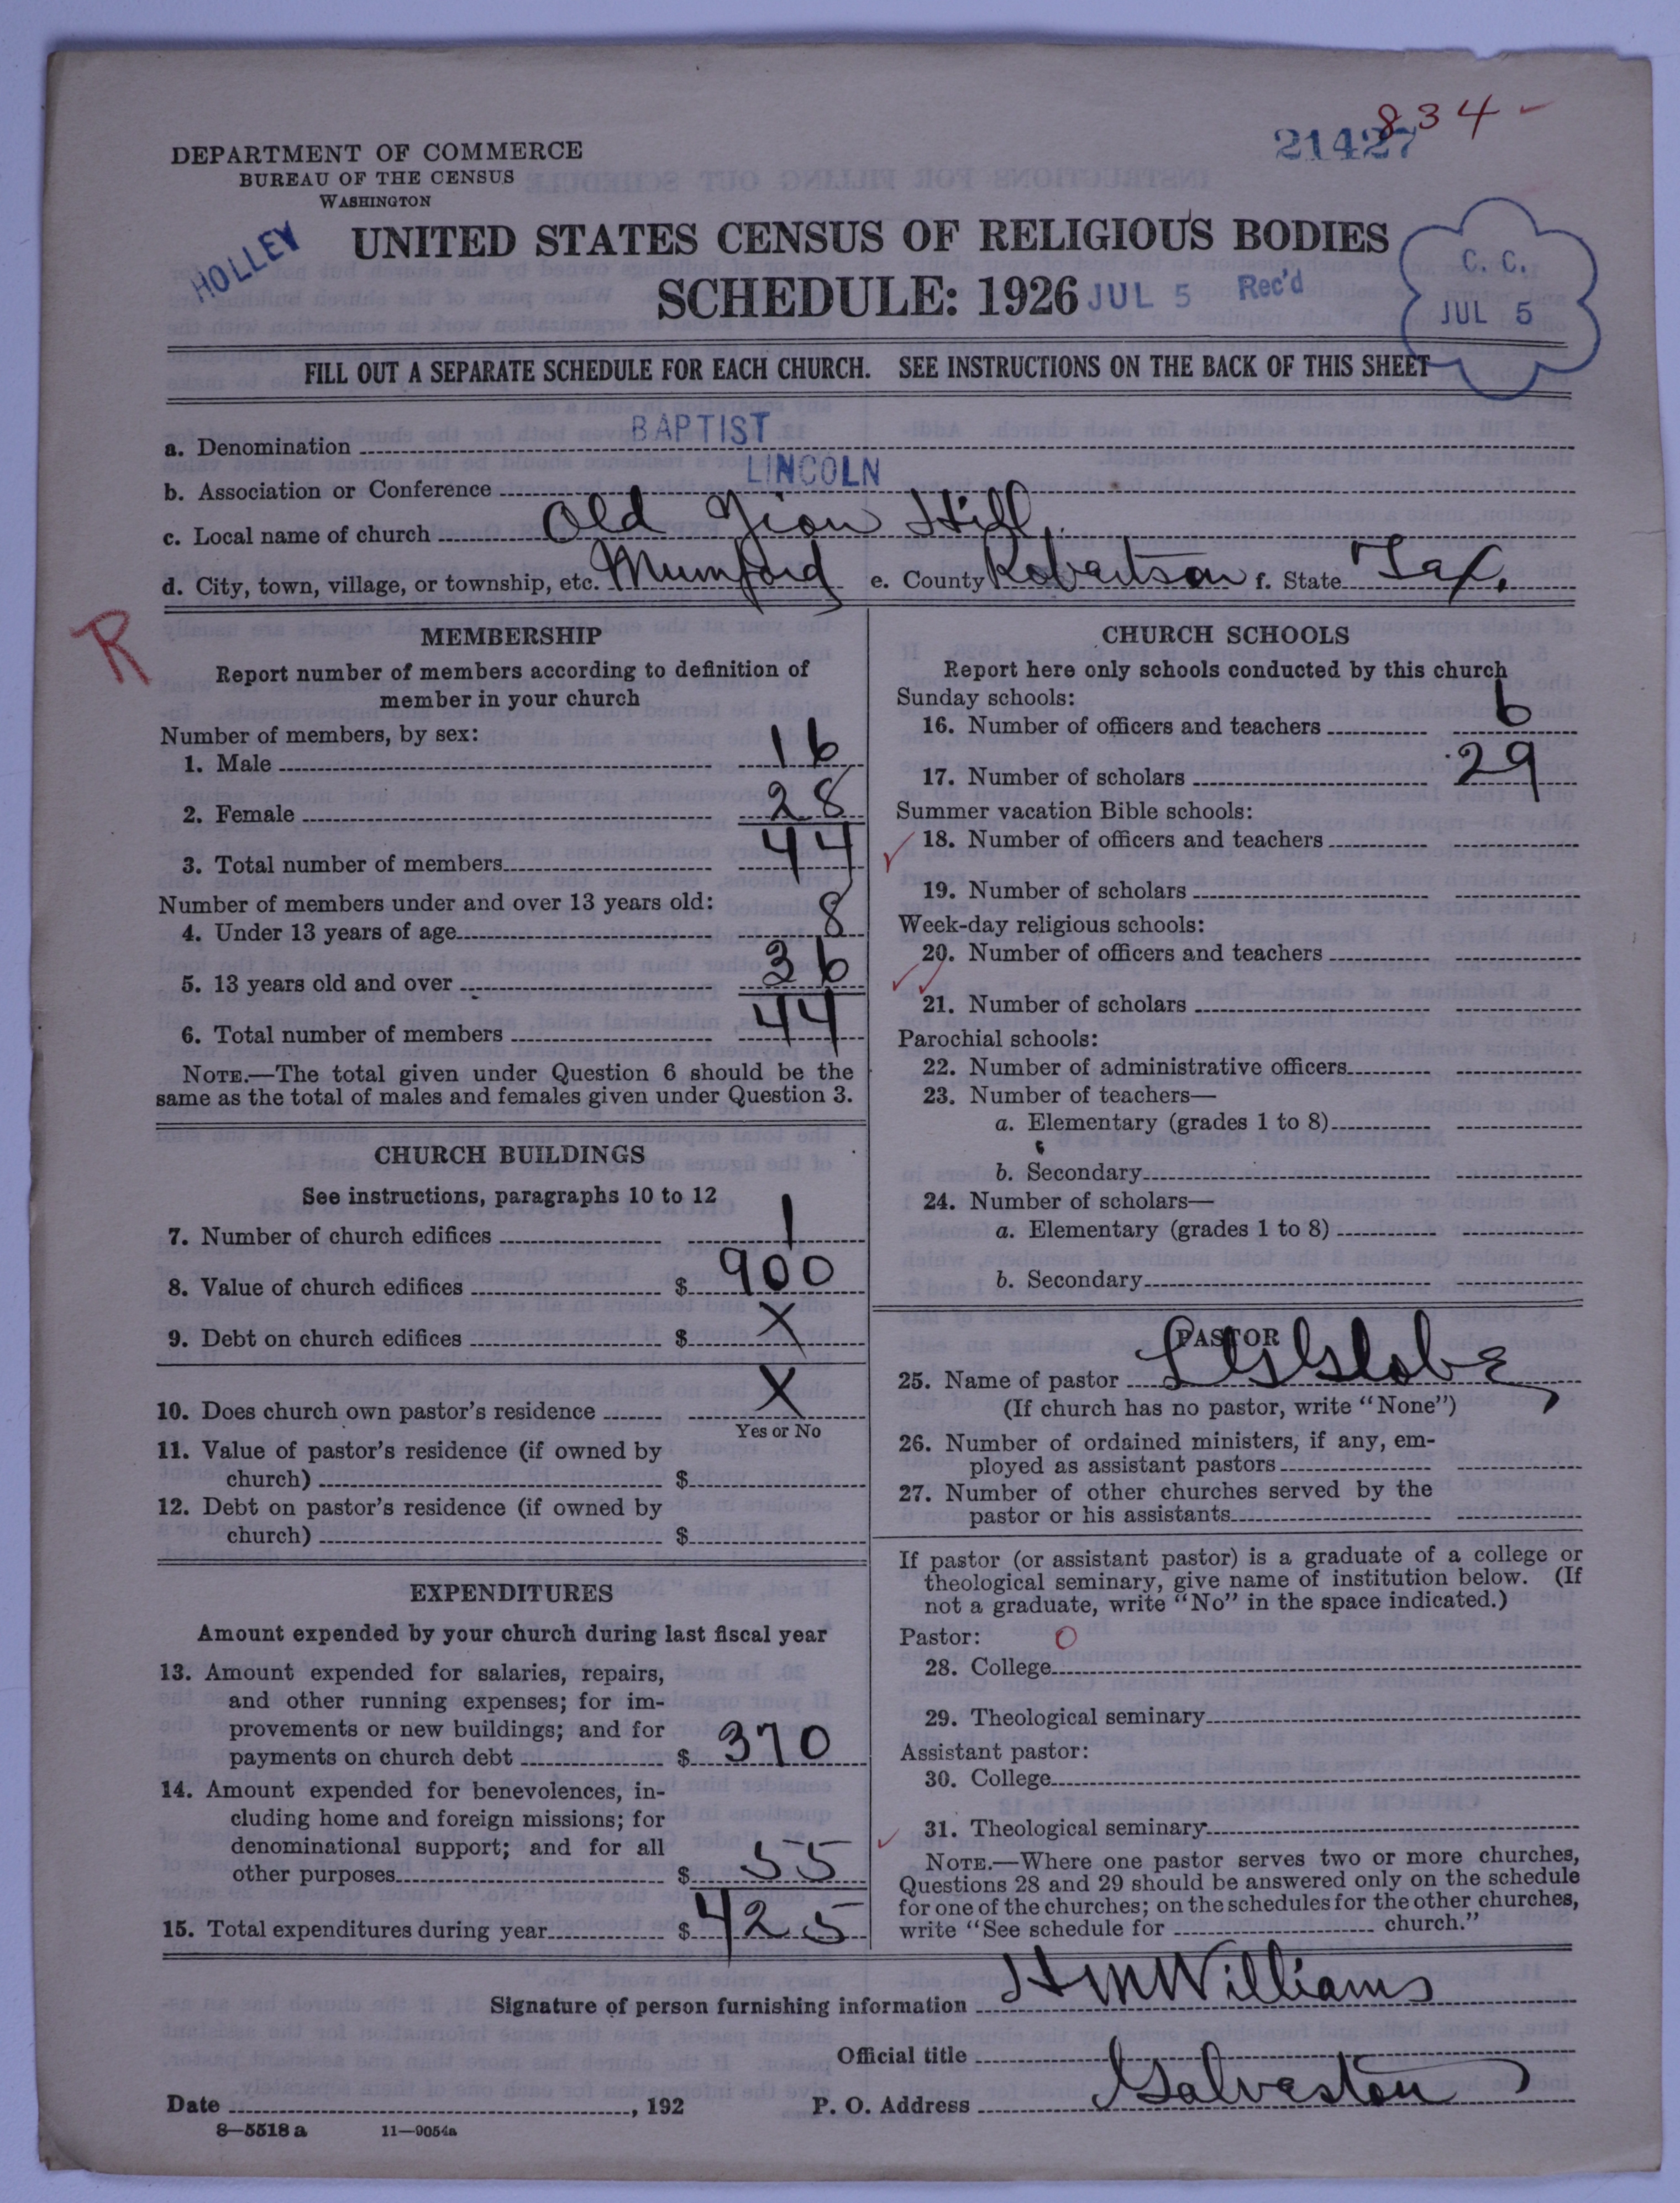 834-
21427
DEPARTMENT OF COMMERCE
BUREAU OF THE CENSUS
WASHINGTON
HOLLEY
UNITED STATES CENSUS OF RELIGIOUS BODIES
SCHEDULE: 1926 JUL 5 Rec'd
C. C.
JUL 5
FILL OUT A SEPARATE SCHEDULE FOR EACH CHURCH. SEE INSTRUCTIONS ON THE BACK OF THIS SHEET
a. Denomination BAPTIST
b. Association or Conference LINCOLN
c. Local name of church Old Zion Hill
d. City, town, village, or township, etc. Mumford e. County Robertson f. State Tex.
R
MEMBERSHIP
Report number of members according to definition of
member in your church
Number of members, by sex:
1. Male 16
2. Female 28
3. Total number of members 44
Number of members under and over 13 years old:
4. Under 13 years of age 8
5. 13 years old and over 36
6. Total number of members 44
NOTE.—The total given under Question 6 should be the
same as the total of males and females given under Question 3.
CHURCH BUILDINGS
See instructions, paragraphs 10 to 12
7. Number of church edifices 1
8. Value of church edifices $ 900
9. Debt on church edifices $ X
10. Does church own pastor's residence X
Yes or No
11. Value of pastor's residence (if owned by
church) $
12. Debt on pastor's residence (if owned by
church) $
EXPENDITURES
Amount expended by your church during last fiscal year
13. Amount expended for salaries, repairs,
and other running expenses; for im-
provements or new buildings; and for
payments on church debt $ 370
14. Amount expended for benevolences, in-
cluding home and foreign missions; for
denominational support; and for all
other purposes $ 55
15. Total expenditures during year $ 425
CHURCH SCHOOLS
Report here only schools conducted by this church
Sunday schools:
16. Number of officers and teachers 6
17. Number of scholars 29
Summer vacation Bible schools:
18. Number of officers and teachers
19. Number of scholars
Week-day religious schools:
20. Number of officers and teachers
21. Number of scholars
Parochial schools:
22. Number of administrative officers
23. Number of teachers—
a. Elementary (grades 1 to 8)
b. Secondary
24. Number of scholars—
a. Elementary (grades 1 to 8)
b. Secondary
PASTOR
25. Name of pastor
(If church has no pastor, write "None")
26. Number of ordained ministers, if any, em-
ployed as assistant pastors
27. Number of other churches served by the
pastor or his assistants
If pastor (or assistant pastor) is a graduate of a college or
theological seminary, give name of institution below. (If
not a graduate, write "No" in the space indicated.)
Pastor: O
28. College
29. Theological seminary
Assistant pastor:
30. College
31. Theological seminary
NOTE.—Where one pastor serves two or more churches,
Questions 28 and 29 should be answered only on the schedule
for one of the churches; on the schedules for the other churches,
write "See schedule for church."
Signature of person furnishing information HMWilliams
Official title
Date , 192 P. O. Address Galveston
8—5518 a 11—9054a